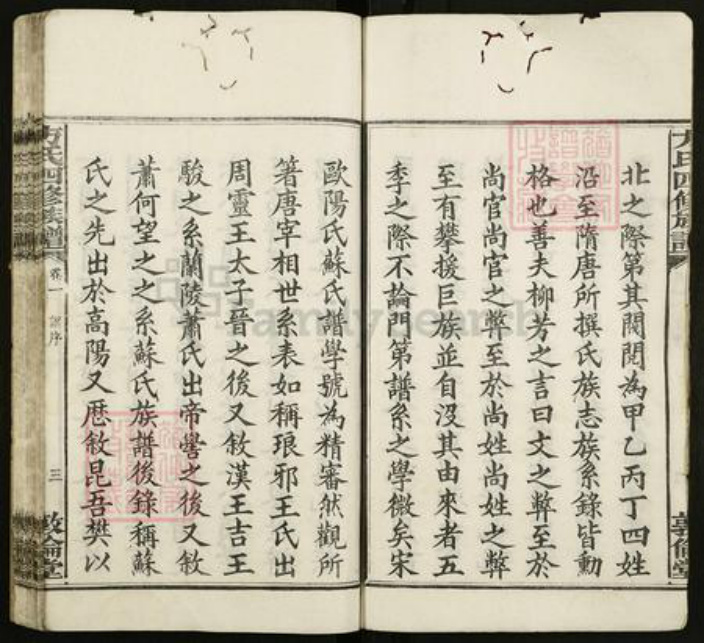 方氏四修族譜
敦倫堂
北之際第其閥閱為甲乙丙丁四姓
沿至隋唐所撰氏族志族系錄皆勳
格也善夫柳芳之言曰文之弊至於
尚官尚官之弊至於尚姓尚姓之弊
至有攀援巨族並自沒其由來者五
季之際不論門第譜系之學微矣宋
歐陽氏蘇氏譜學號為精審然觀所
箸唐宰相世系表如稱琅邪王氏出
周靈王太子晉之後又敘漢王吉王
駿之系蘭陵蕭氏出帝嚳之後又敘
蕭何望之之系蘇氏族譜後錄稱蘇
氏之先出於高陽又歷敘昆吾樊以
方氏四修族譜
卷一
序
三
敦倫堂
FamilySearch